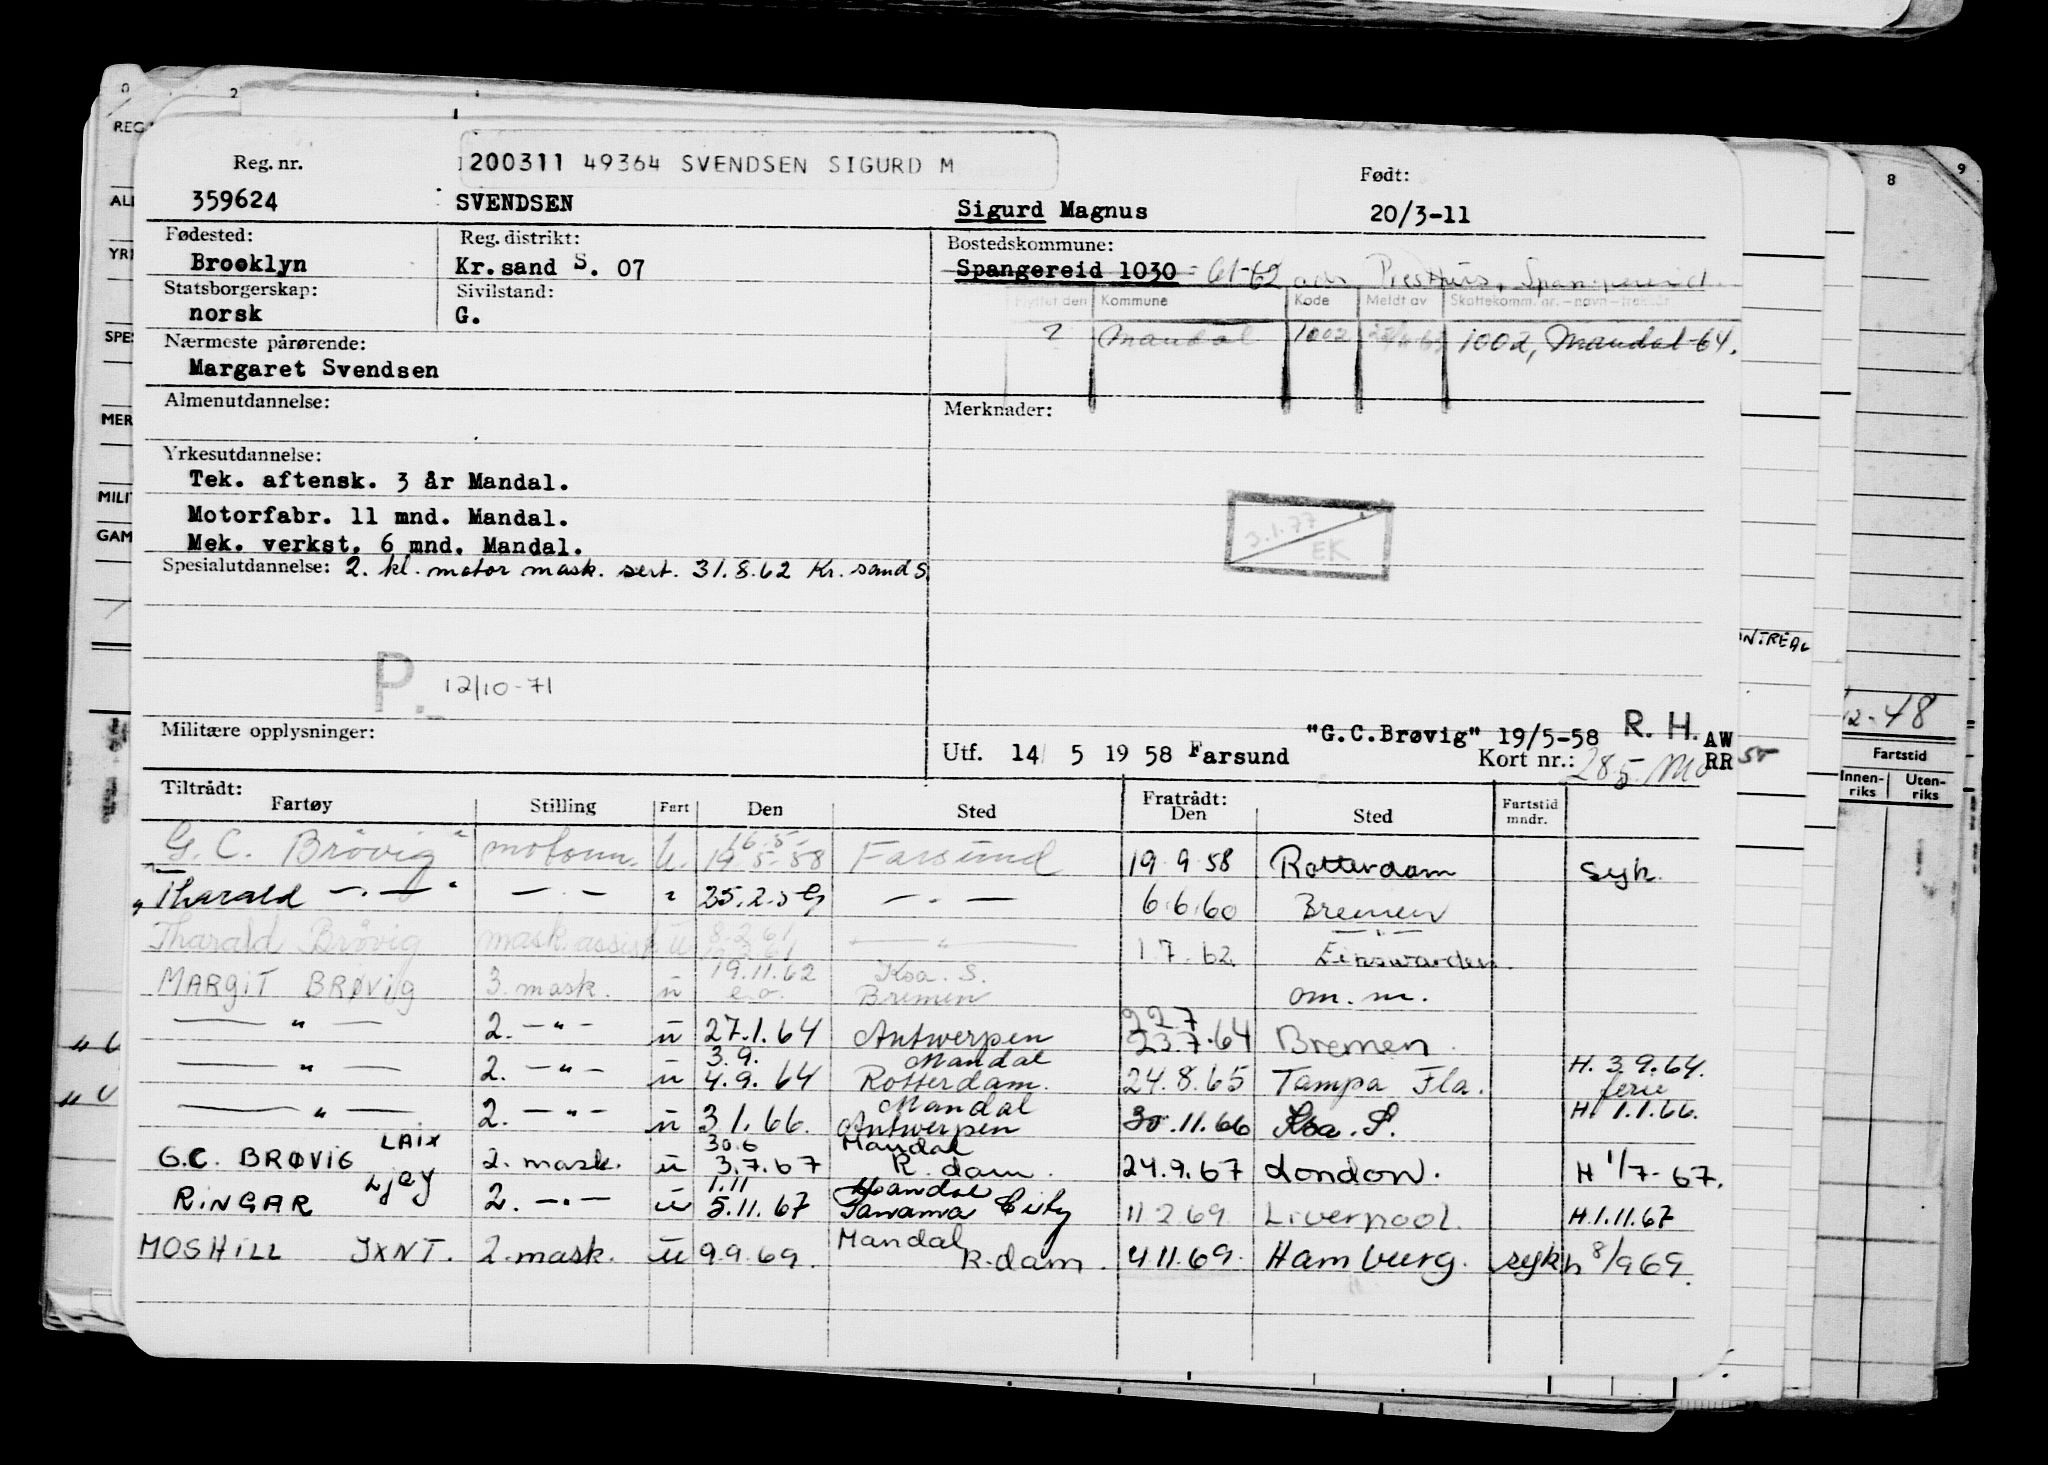 Reg. nr.
200311 49364 SVENDSEN SIGURD M
Født:
359624 SVENDSEN Sigurd Magnus 20/3-11
Fødested: Reg. distrikt: Bostedskommune:
Brooklyn Kr.sand S. 07 Spangereid 1030 - 61-62 adr Spangereid
Statsborgerskap: Sivilstand:
Flyttet den Kommune Kode Meldt av Skattekomm. nr. – navn –
norsk G.
2 Mandal 1002 1002, Mandal-64.
Nærmeste pårørende:
Margaret Svendsen
Almenutdannelse: Merknader:
Yrkesutdannelse:
Tek. aftensk. 3 år Mandal.
Motorfabr. 11 mnd. Mandal.
Mek. verkst. 6 mnd. Mandal.
3.1.77
EK
Spesialutdannelse: 2. kl. motor mask. sert. 31.8.62 Kr. sand S.
P. 12/10-71
Militære opplysninger:
"G.C.Brøvig" 19/5-58 R. H. AW
Utf. 14 5 1958 Farsund Kort nr.: 285. RR
Tiltrådt:
Fartøy Stilling Fart Den Sted Fratrådt: Den Sted Fartstid mndr.
16.5.
"G. C. Brøvig" motorm. U. 19.5.58 Farsund 19.9.58 Rotterdam syk.
"Tharald —.—" —.— " 25.2.59 —.— 6.6.60 Bremen
8.2.61
Tharald Brøvig mask.assist ü —"— 1.7.62 Einswarden.
19.11.62 Ksa. S.
MARGIT BRØVIG 3. mask. ü e.o. Bremen om. m.
22.7
—"— 2. —"— ü 27.1.64 Antwerpen 23.7.64 Bremen.
3.9. Mandal H. 3.9.64.
—"— 2. —"— ü 4.9.64 Rotterdam. 24.8.65 Tampa Fla. ferie
Mandal H. 1.1.66.
—"— 2. —"— ü 3 1.66. Antwerpen 30.11.66 Ksa. S.
LAIX 30.6 Mandal
G.C. BRØVIG 2. mask. ü 3.7.67 R.dam. 24.9.67 London. H 1/7-67.
LJEY 1.11 Mandal
RINGAR 2. —"— ü 5.11.67 Panama City 11 2 69 Liverpool. H.1.11.67
Mandal
MOSHILL JXNT. 2. mask. ü 9.9.69. R.dam. 4.11.69. Hamburg. syk h 8/9 69.
REG
ALL
YRK
SPES
MER
MILIT
GAM
0
2
8
9
ONTREAL
12-48
Fartstid
Innen-riks Uten-riks